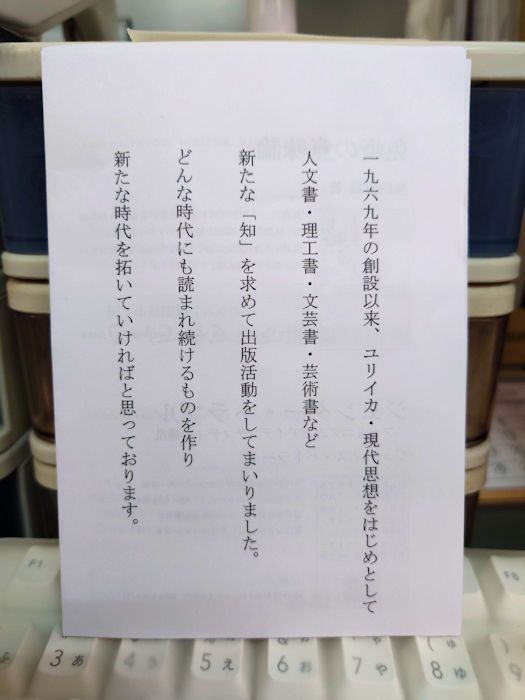 一九六九年の創設以来、ユリイカ・現代思想をはじめとして
人文書・理工書・文芸書・芸術書など
新たな「知」を求めて出版活動をしてまいりました。
どんな時代にも読まれ続けるものを作り
新たな時代を拓いていければと思っております。
F1
F8
ふ
3 あ
4 う
5 え
6 お
7 や
8 ゆ
9